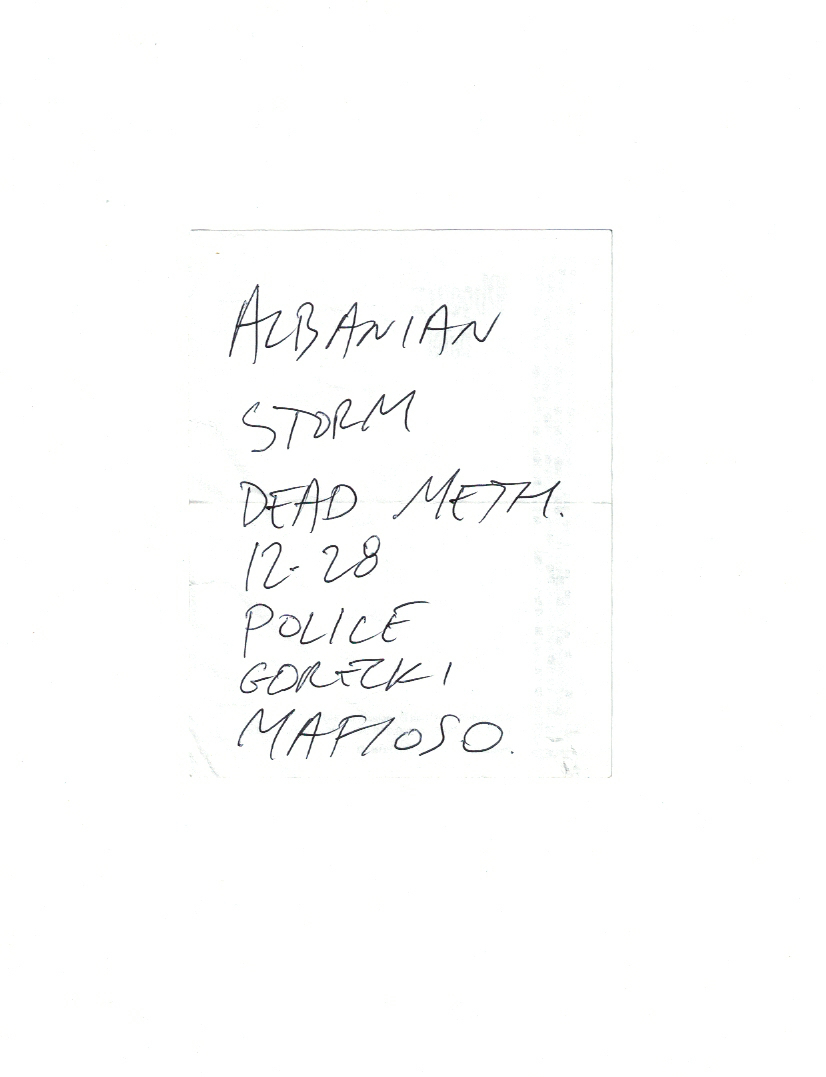 ALBANIAN
STORM
DEAD METH.
12-28
POLICE
GOREZKI
MAFIOSO.